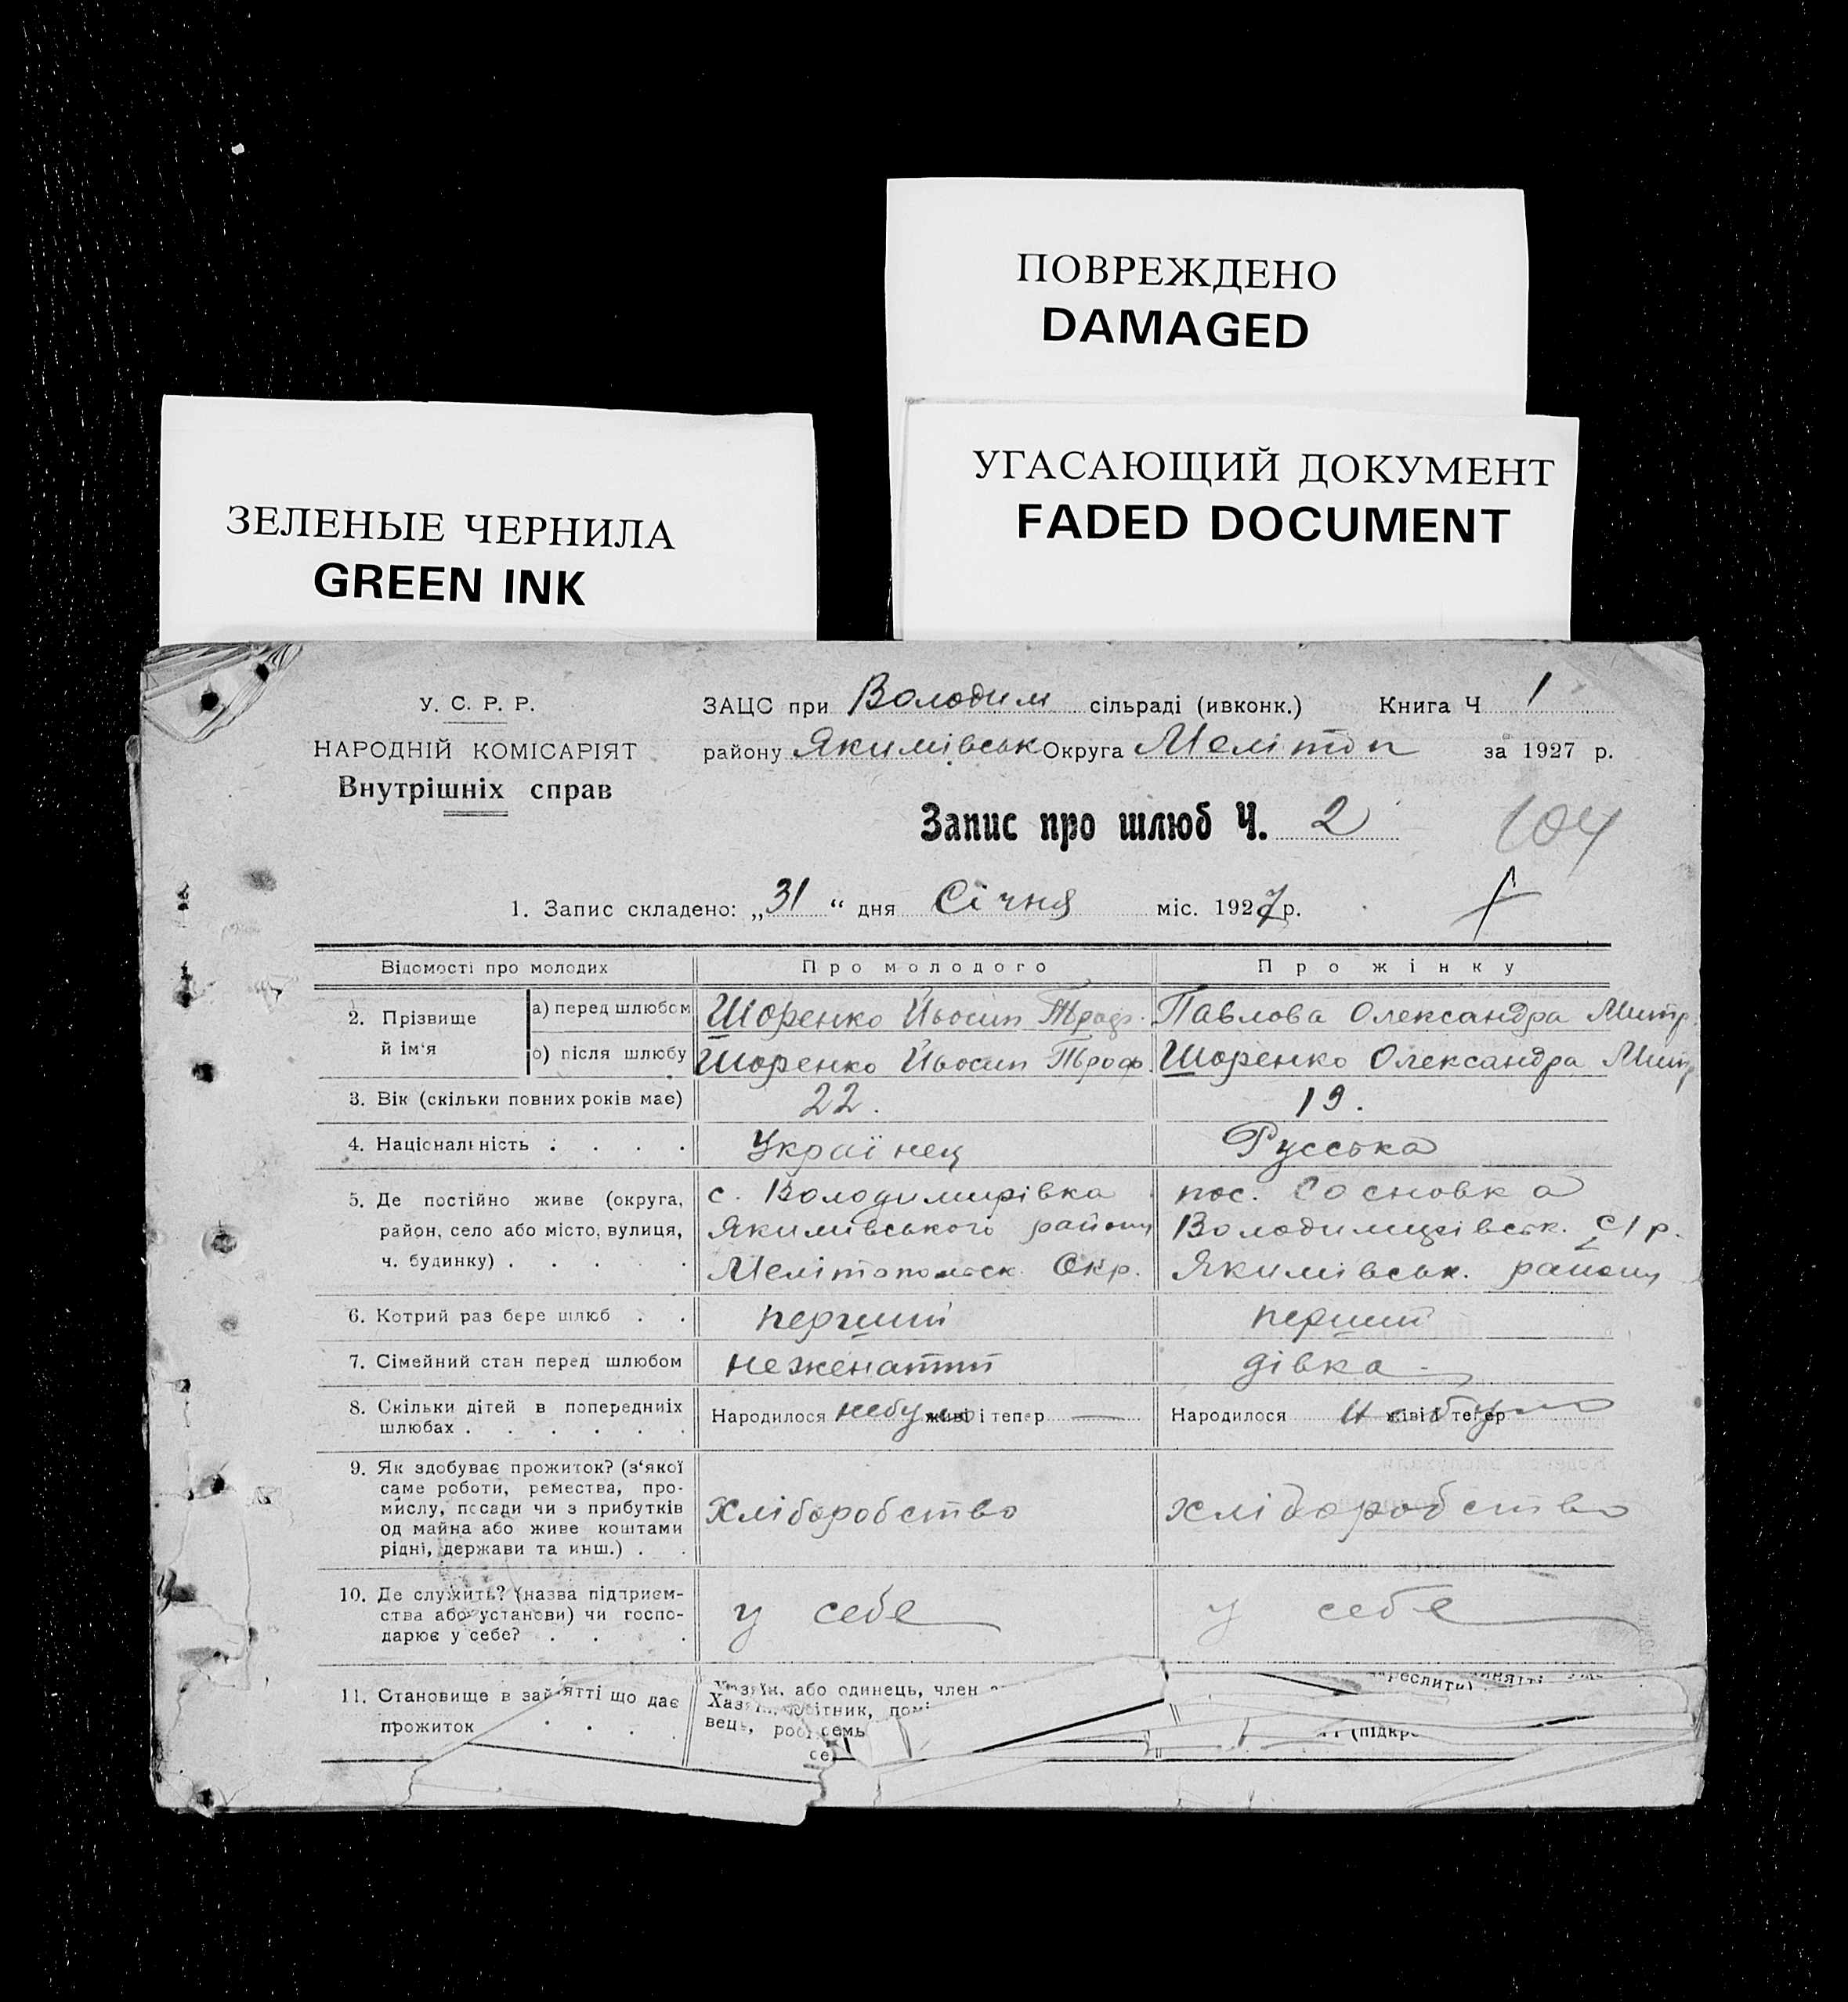 ПОВРЕЖДЕНО
DAMAGED
УГАСАЮЩИЙ ДОКУМЕНТ
FADED DOCUMENT
ЗЕЛЕНЫЕ ЧЕРНИЛА
GREEN INK
У. С. Р. Р.
НАРОДНІЙ КОМІСАРІЯТ
Внутрішніх справ
ЗАЦС при Володим сільраді (ивконк.) Книга Ч 1
району Якимівськ Округа Мелітоп за 1927 р.
Запис про шлюб Ч. 2
104
1. Запис складено: „31“ дня Січня міс. 1927 р.
Відомості про молодих Про молодого Про жінку
2. Прізвище й ім‘я
а) перед шлюбом Шоренко Йьосип Павлова Олександра Митр.
о) після шлюбу Шоренко Йьосип Шоренко Олександра Митр
3. Вік (скільки повних років має) 22. 19.
4. Національність . . . . Українец Русська
5. Де постійно живе (округа, район, село або місто, вулиця, ч. будинку) . . . . .
с. Володимирівка
Якимівського району
Мелітопольск Окр.
пос. Сосновка
Володимирівськ. с/р.
Якимівськ. району
6. Котрий раз бере шлюб . . перший перший
7. Сімейний стан перед шлюбом неженатий дівка
8. Скільки дітей в попередніх шлюбах . . . . . .
Народилося небуло живі і тепер — Народилося небуло живі і тепер
9. Як здобуває прожиток? (з‘якої
саме роботи, ремества, про-
мислу, посади чи з прибутків
од майна або живе коштами
рідні, держави та инш.) . .
Хліборобство хліборобство
10. Де служить? (назва підприєм-
ства або установи) чи госпо-
дарює у себе? . . .
у себе у себе
11. Становище в занятті що дає
прожиток . . .
або одинець, член